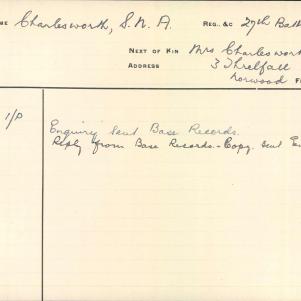 ME Charlesworth, S. N. A. REG., &c 27th Batt
NEXT OF KIN Mrs Charleswort
ADDRESS 3 Threlfall
Norwood F
1/P Enquiry sent Base Records.
Reply from Base Records. - Copy. sent En